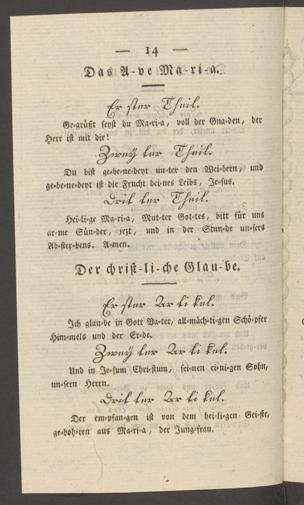 — 14 —
Das A-ve Ma-ri-a.
Er ster Theil.
Ge-grüßt seyst du Ma-ri-a, voll der Gna-den, der
Herr ist mit dir!
Zwey ter Theil.
Du bist ge-be-ne-deyt un-ter den Wei-bern, und
ge-be-ne-deyt ist die Frucht dei-nes Leibs, Je-sus.
Drit ter Theil.
Hei-li-ge Ma-ri-a, Mut-ter Got-tes, bitt für uns
ar-me Sün-der, jezt, und in der Stun-de un-sers
Ab-ster-bens. A-men.
Der christ-li-che Glau-be.
Er ster Ar ti kel.
Ich glau-be in Gott Va-ter, all-mäch-ti-gen Schö-pfer
Him-mels und der Er-de.
Zwey ter Ar ti kel.
Und in Je-sum Chri-stum, sei-nen ei-ni-gen Sohn,
un-sern Herrn.
Drit ter Ar ti kel.
Der em-pfan-gen ist von dem hei-li-gen Gei-ste,
ge-boh-ren aus Ma-ri-a, der Jung-frau.